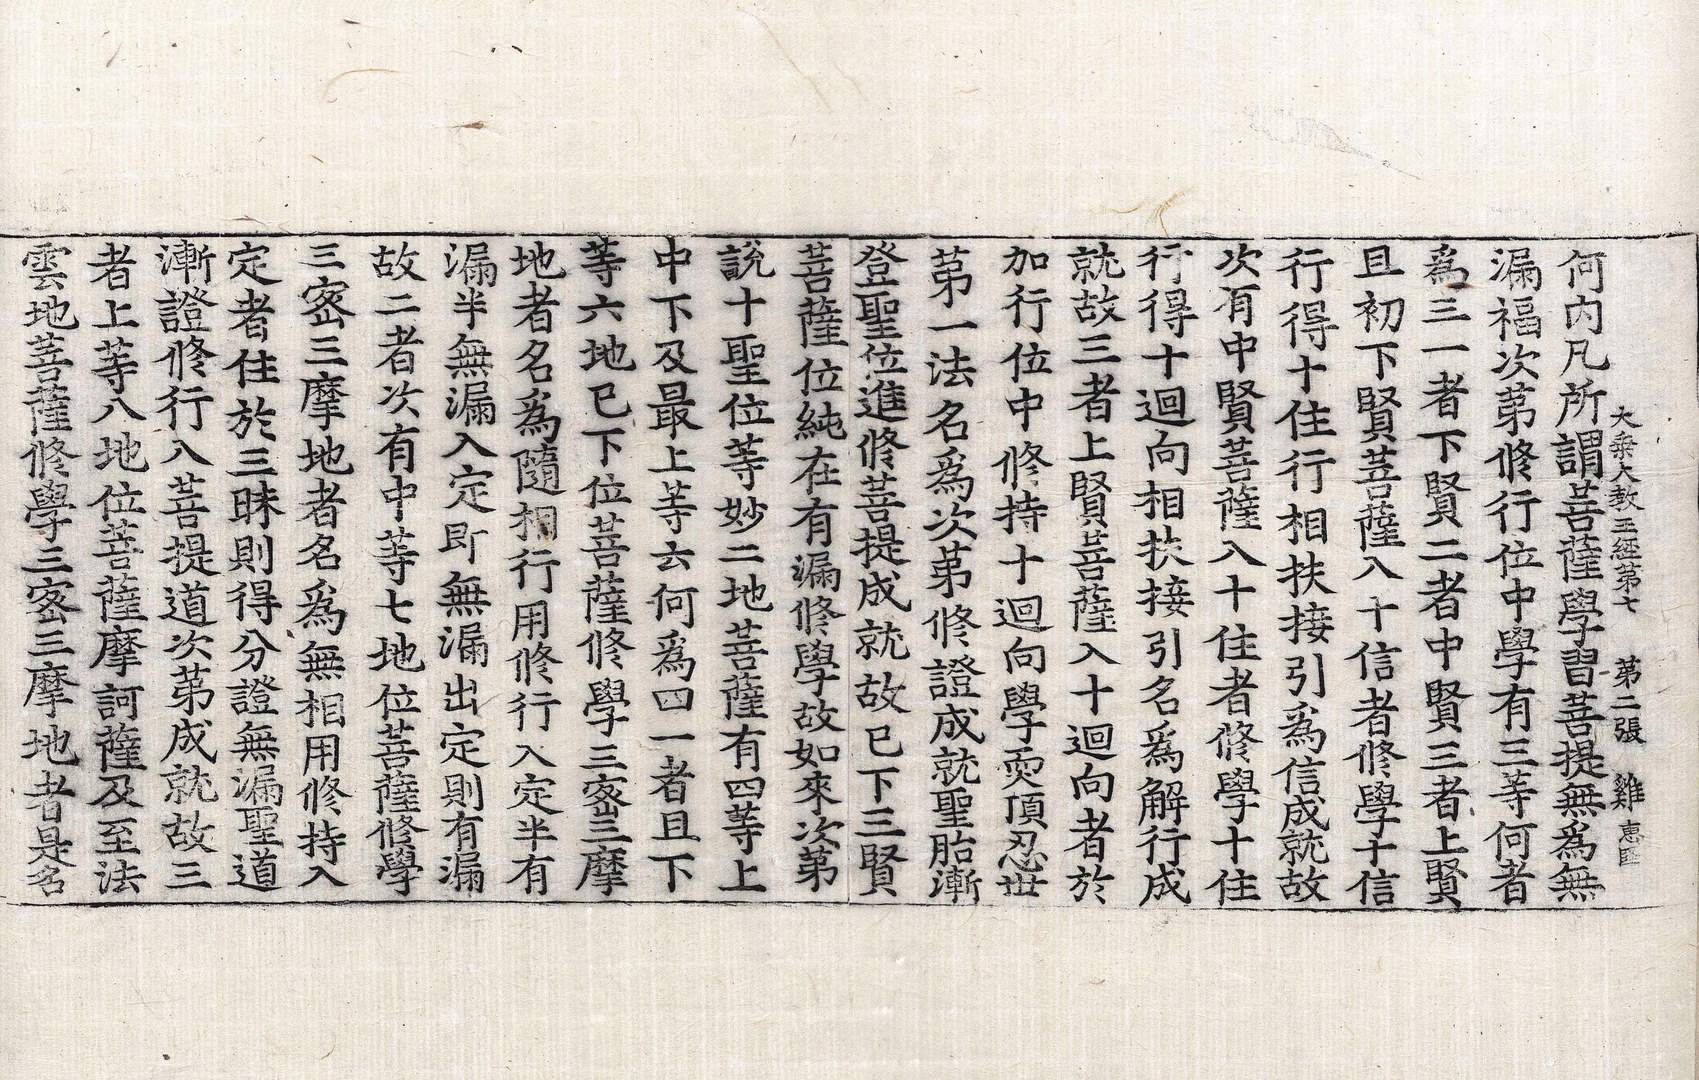 大乘大教王經第七　第二張　雞
何內凡所謂菩薩學習菩提無爲無
漏福次第修行位中學有三等何者
爲三一者下賢二者中賢三者上賢
且初下賢菩薩入十信者修學十信
行得十住行相扶接引爲信成就故
次有中賢菩薩入十住者修學十住
行得十迴向相扶接引名爲解行成
就故三者上賢菩薩入十迴向者於
加行位中修持十迴向學煗頂忍世
第一法名爲次第修證成就聖胎漸
登聖位進修菩提成就故已下三賢
菩薩位純在有漏修學故如來次第
說十聖位等妙二地菩薩有四等上
中下及最上等云何爲四一者且下
等六地已下位菩薩修學三密三摩
地者名爲隨相行用修行入定半有
漏半無漏入定即無漏出定則有漏
故二者次有中等七地位菩薩修學
三密三摩地者名爲無相用修持入
定者住於三昧則得分證無漏聖道
漸證修行入菩提道次第成就故三
者上等八地位菩薩摩訶薩及至法
雲地菩薩修學三密三摩地者是名